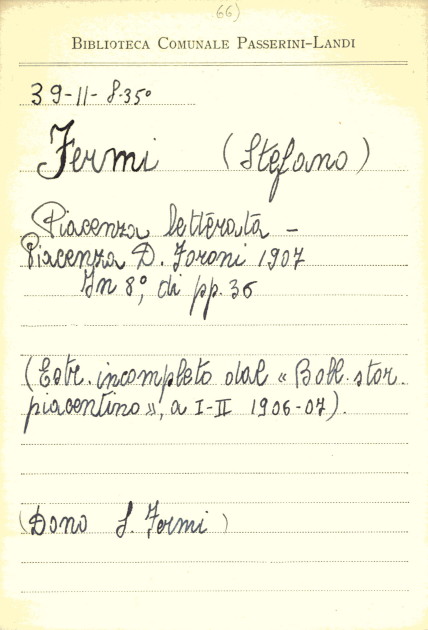 66)
BIBLIOTECA COMUNALE PASSERINI-LANDI
39-11-8.35°
Fermi (Stefano)
Piacenza letterata -
Piacenza D. Foroni 1907
In 8°, di pp. 36
(Estr. incompleto dal « Boll. stor.
piacentino », a I-II 1906-07).
(Dono S. Fermi)